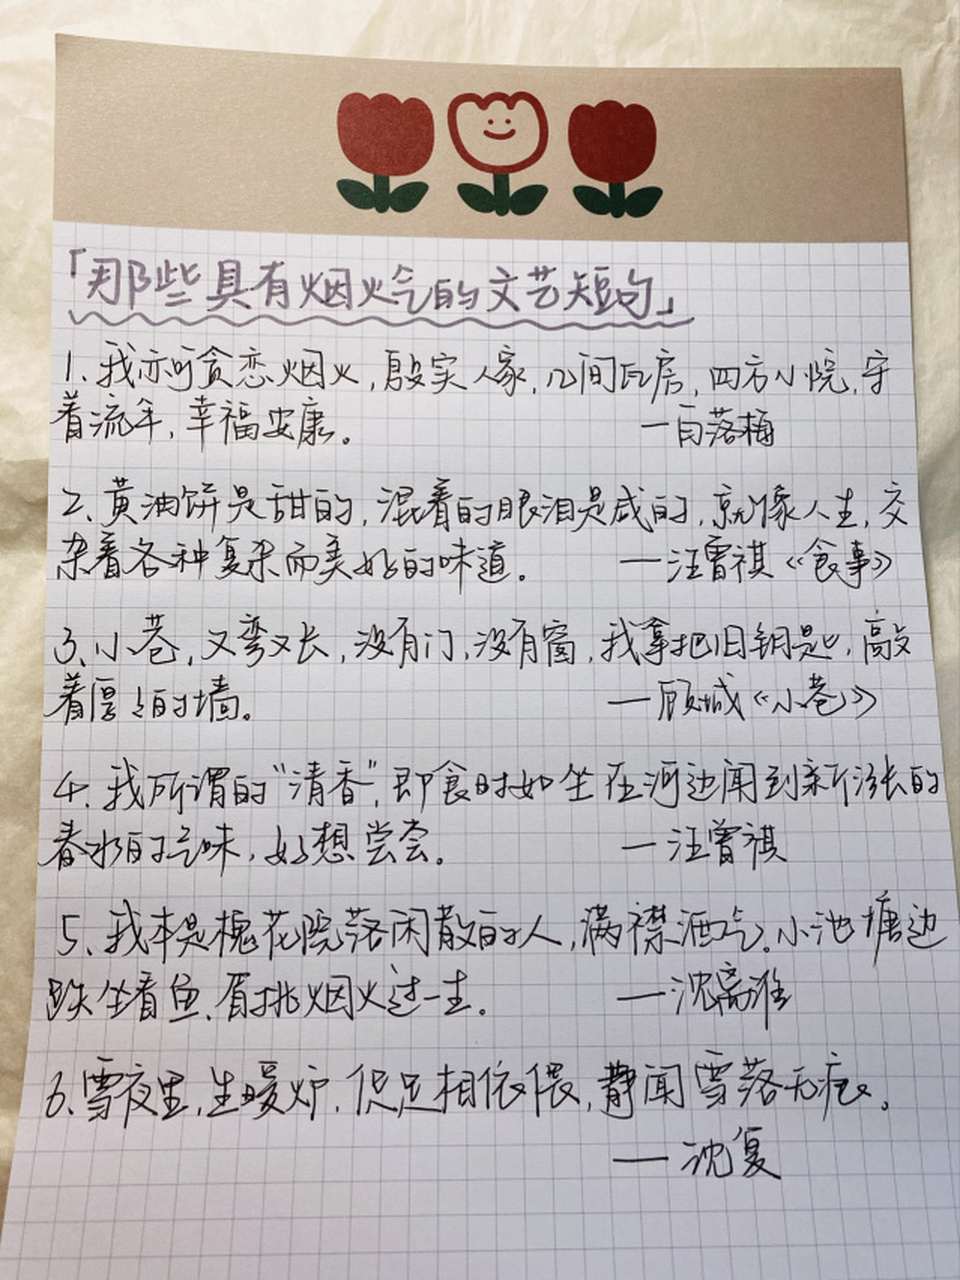 「那些具有烟火气的文艺短句」
1、我亦可贪恋烟火，殷实人家，几间瓦房，四方小院，守
着流年，幸福安康。 —白落梅
2、黄油饼是甜的，混着的眼泪是咸的，就像人生，交
杂着各种复杂而美好的味道。 —汪曾祺《食事》
3、小巷，又弯又长，没有门，没有窗，我拿把旧钥匙，敲
着厚厚的墙。 —顾城《小巷》
4、我所谓的“清香”，即食时如坐在河边闻到新涨的
春水的气味，好想尝尝。 —汪曾祺
5、我本是槐花院落闲散的人，满襟酒气。小池塘边
跌坐看鱼、肩挑烟火过一生。
6、雪夜里，生暖炉，促足相依偎，静闻雪落无痕。
—沈复